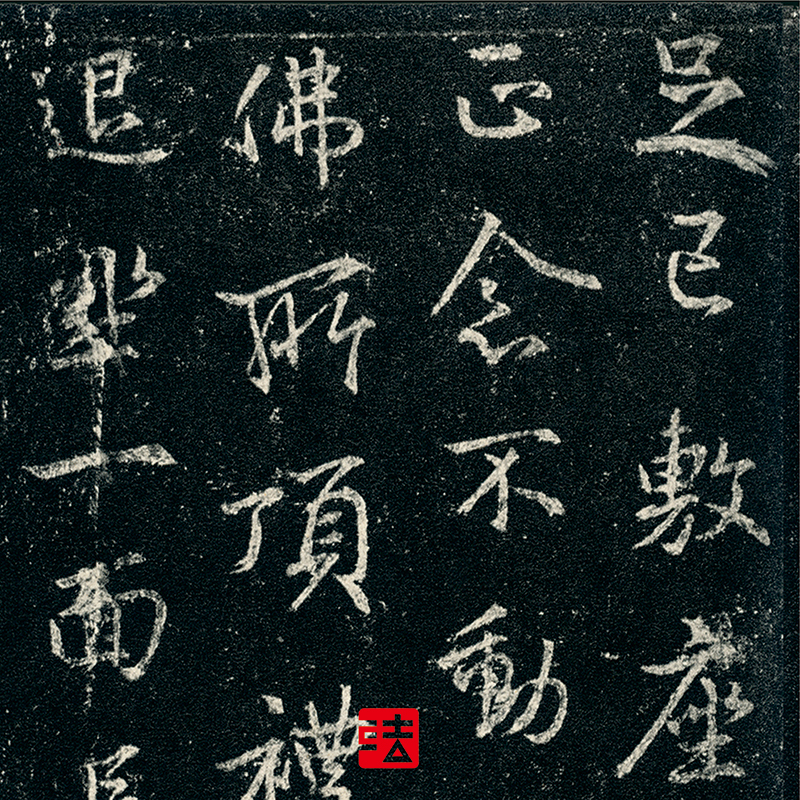 足已敷座
正念不動
佛所頂禮
退坐一面
法